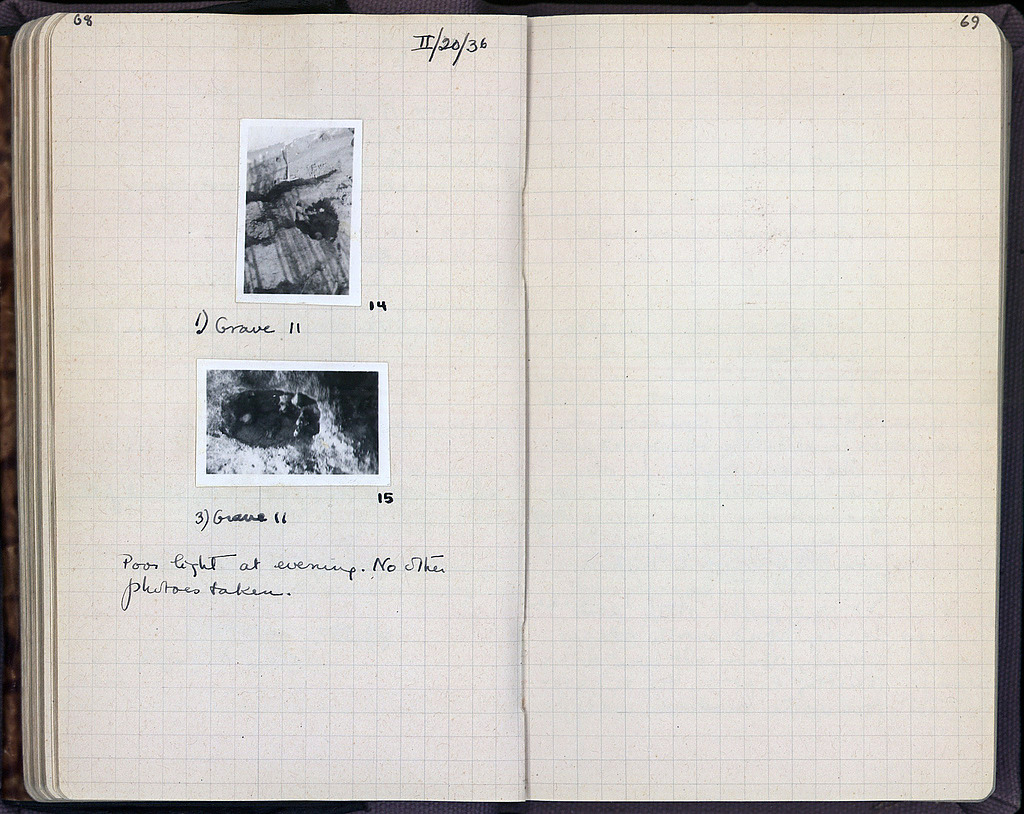 68
II/20/36
14
1) Grave 11
15
3) Grave 11
Poor light at evening. No other
photoes taken.
69